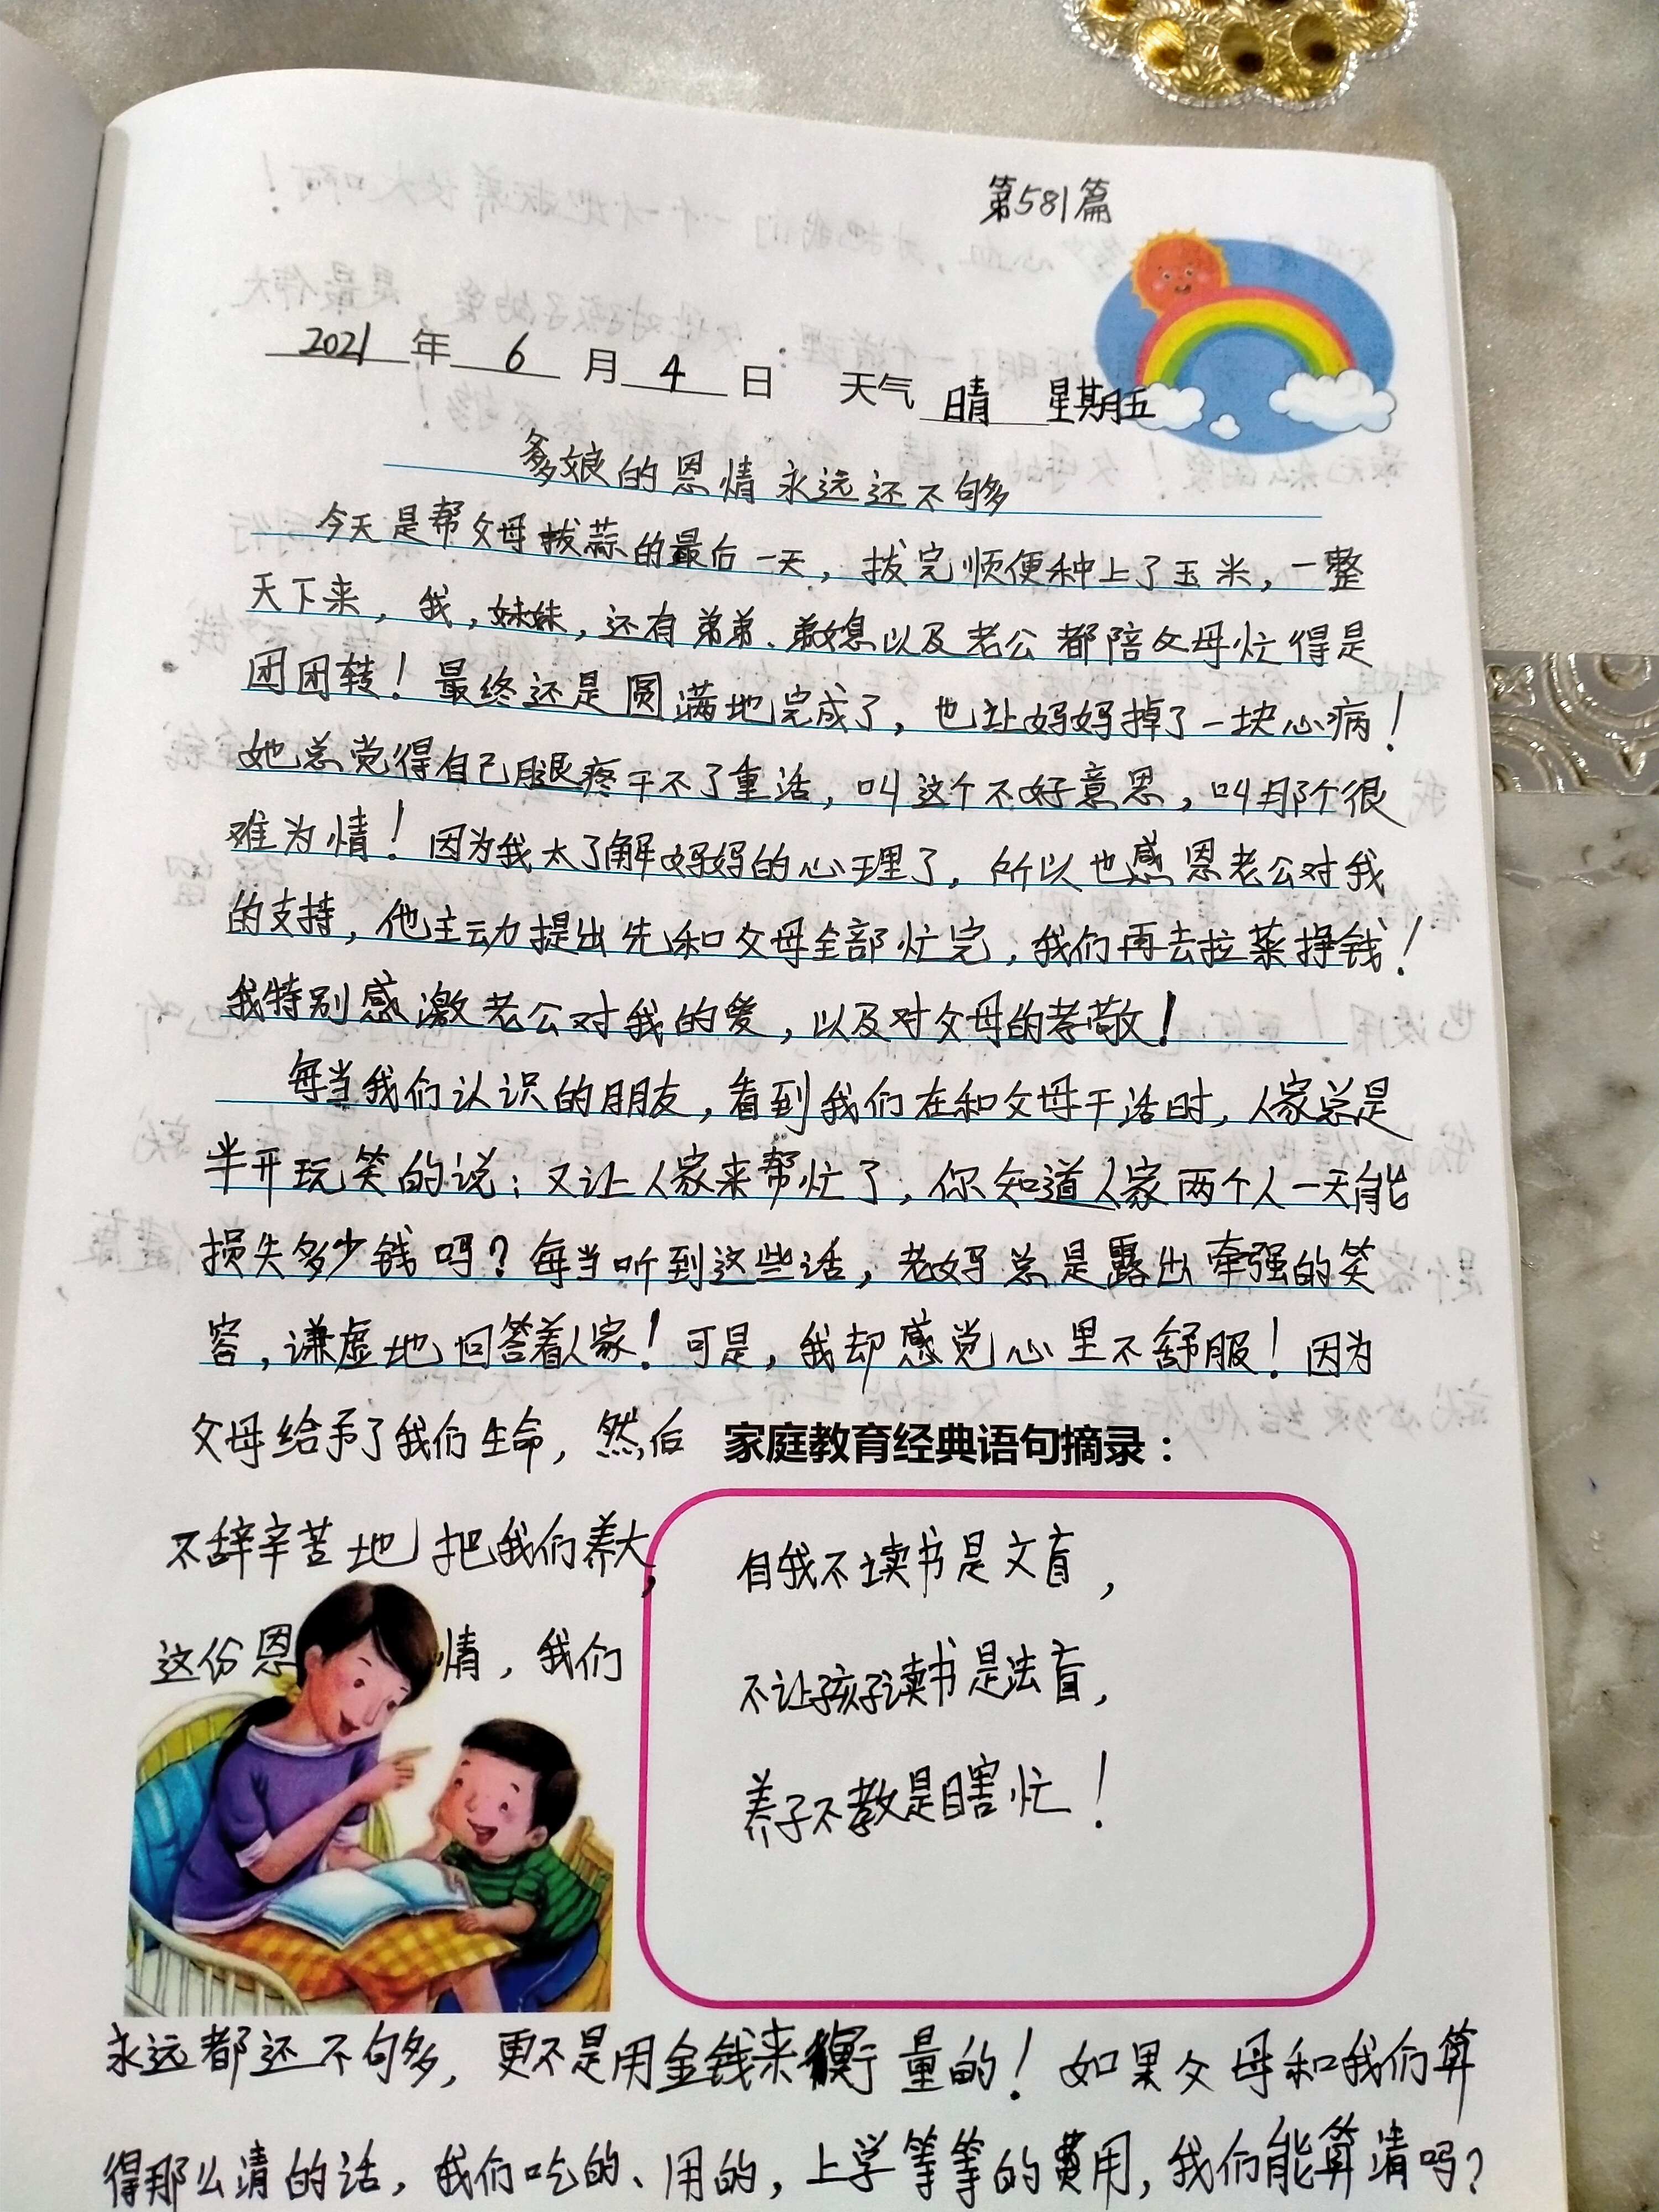 第581篇
2021年6月4日 天气 晴 星期五
爹娘的恩情永远还不够
今天是帮父母拔蒜的最后一天，拔完顺便种上了玉米，一整
天下来，我，妹妹，还有弟弟、弟媳以及老公都陪父母忙得是
团团转！最终还是圆满地完成了，也让妈妈掉了一块心病！
她总觉得自己腿疼干不了重活，叫这个不好意思，叫那个很
难为情！因为我太了解妈妈的心理了，所以也感恩老公对我
的支持，他主动提出先和父母全部忙完，我们再去拉菜挣钱！
我特别感激老公对我的爱，以及对父母的孝敬！
每当我们认识的朋友，看到我们在和父母干活时，人家总是
半开玩笑的说：又让人家来帮忙了，你知道人家两个人一天能
损失多少钱吗？每当听到这些话，老妈总是露出牵强的笑
容，谦虚地回答着人家！可是，我却感觉心里不舒服！因为
父母给予了我们生命，然后
不辞辛苦地把我们养大，
这份恩情，我们
家庭教育经典语句摘录：
自我不读书是文盲，
不让孩子读书是法盲，
养子不教是瞎忙！
永远都还不够，更不是用金钱来衡量的！如果父母和我们算
得那么清的话，我们吃的、用的，上学等等的费用，我们能算清吗？